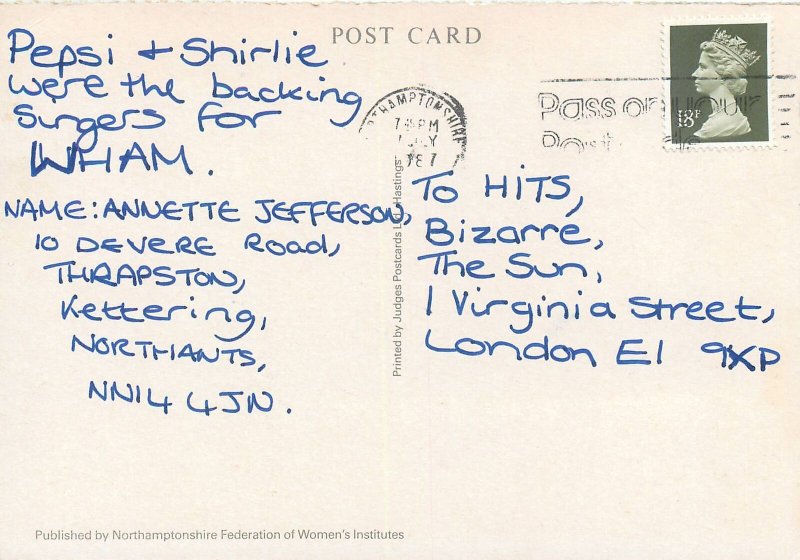 POST CARD
Pepsi + Shirlie
were the backing
singers for
WHAM.
NAME: ANNETTE JEFFERSON,
10 DEVERE ROAD,
THRAPSTON,
Kettering,
NORTHANTS,
NN14 4JN.
Published by Northamptonshire Federation of Women's Institutes
Printed by Judges Postcards Ltd., Hastings
THAMPTONSHIRE
7 PM
LY
Pass on your
18P
To HITS,
Bizarre,
The Sun,
1 Virginia Street,
London E1 9XP